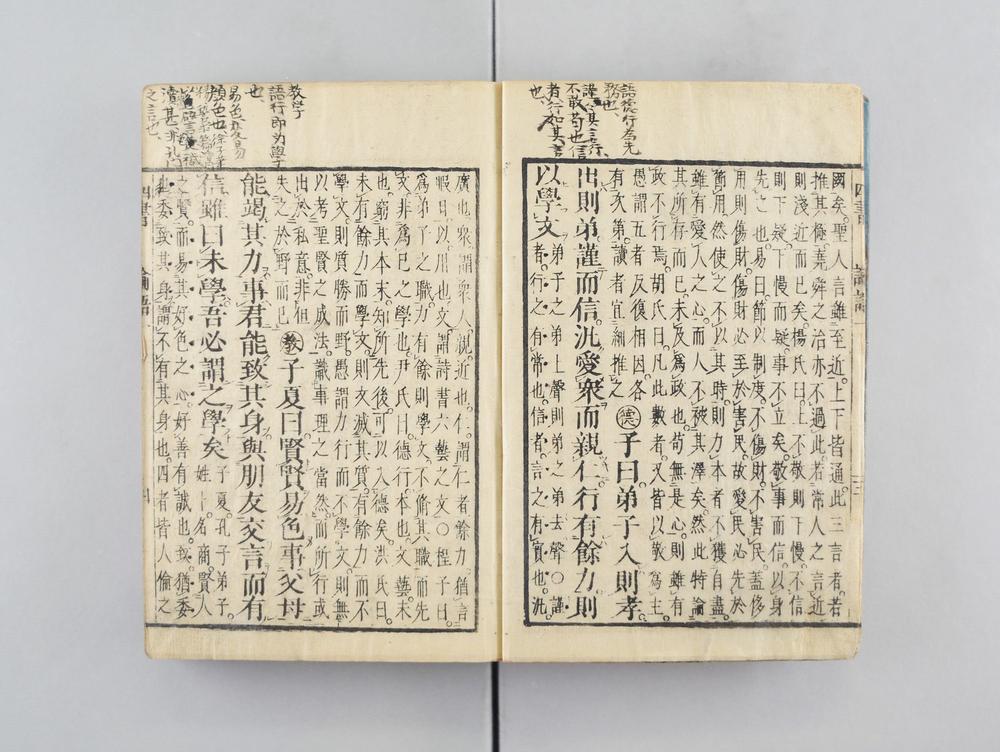 語德行為先
務也、
不敢苟也信
者行如其言
也、
國矣。聖人言雖至近。上下皆通。此三言者。若
推其極堯舜之治亦不過此。若常人之言近
則淺近而已矣。楊氏曰。上不敬則下慢。不信
則下疑。下慢而疑。事不立矣。敬事而信。以身
先之也。易曰。節以制度。不傷財。不害民。蓋侈
用則傷財。傷財必至於害民。故愛民必先於
節用。然使之不以其時。則力本者不獲自盡。
雖有愛人之心。而人不被其澤矣。然此特論
其所存而已。未及爲政也。苟無是心。則雖有
政不行焉。胡氏曰。凡此數者。又皆以敬爲主。
愚謂五者反復相因。各
有次第。讀者宜細推之
德 子曰弟子入則孝
出則弟謹而信汎愛衆而親仁行有餘力則
以學文
弟子之弟上聲則弟之弟去聲○謹
者。行之有常也。信者。言之有實也。汎。
四書 論語 三
教學
語行即為學
也、
廣也。衆謂衆人。親。近也。仁。謂仁者餘力。猶言
暇日。以。用也。文。謂詩書六藝之文○程子曰
爲弟子之職。力有餘則學文。不脩其職而先
文。非爲己之學也。尹氏曰。德行。本也。文藝。末
也。窮其本末。知所先後。可以入德矣。洪氏曰。
未有餘力而學文。則文滅其質。有餘力而不
學文。則質勝而野。愚謂力行而不學文。則無
以考聖賢之成法。識事理之當然。而所行或
出於私意。非但
失之於野而已
教 子夏曰賢賢易色事父母
能竭其力事君能致其身與朋友交言而有
信雖曰未學吾必謂之學矣
子夏。孔子弟子。
姓卜。名商。賢人
之賢。而易其好色之心。好善有誠也。致。猶委
也。委致其身。謂不有其身也。四者皆人倫之
四書 論語 四